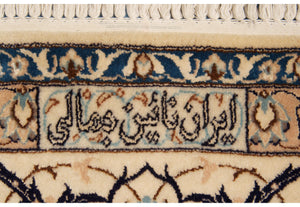 ایران نائین جمالی